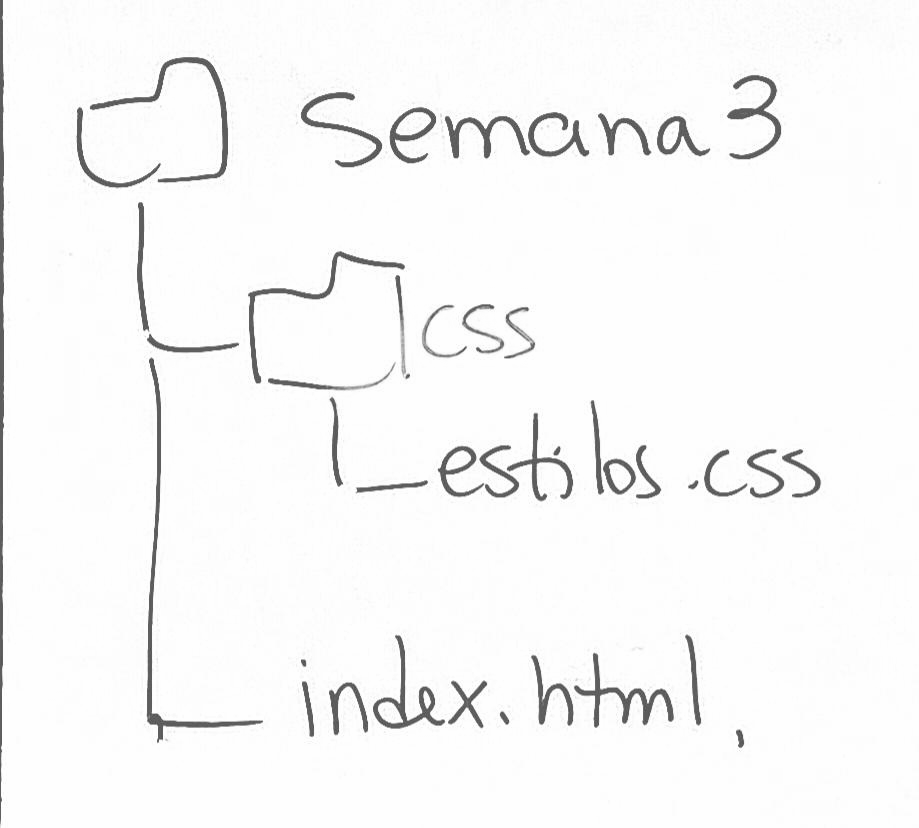 Semana 3
css
estilos.css
index.html,